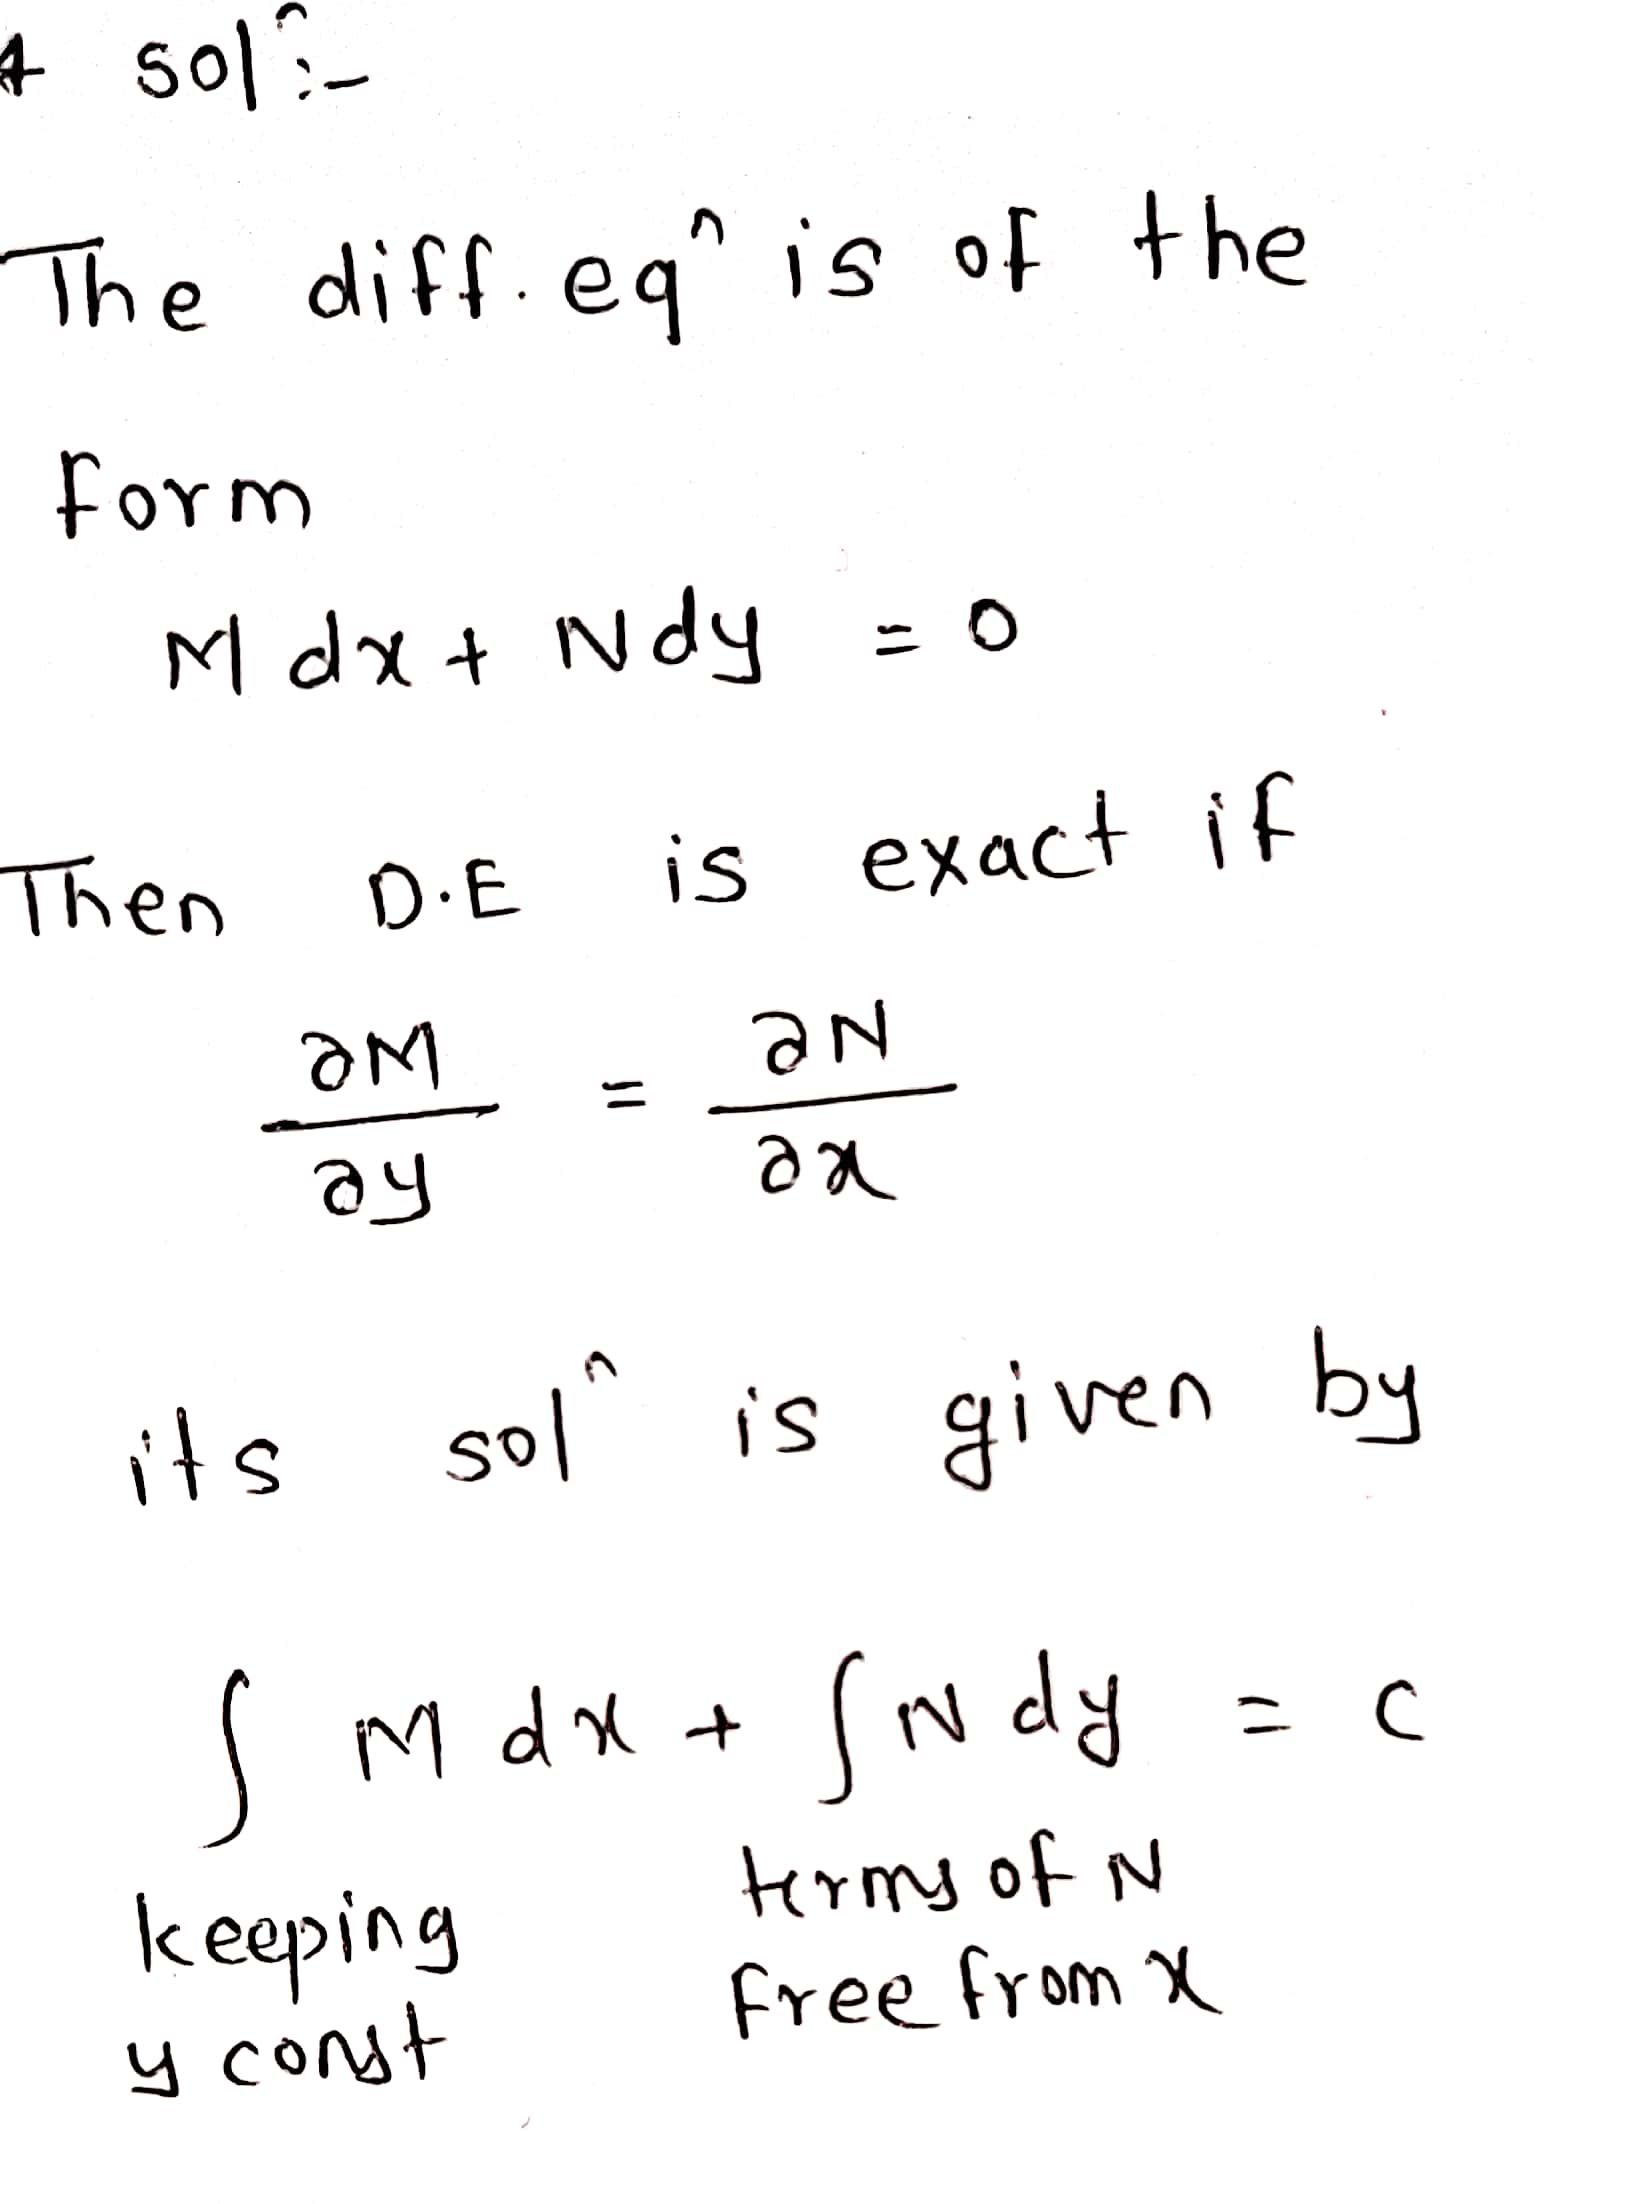 solⁿ:-
The diff. eqⁿ is of the
form
M dx + N dy = 0
Then D.E is exact if
∂M/∂y = ∂N/∂x
its solⁿ is given by
∫ M dx + ∫ N dy = c
keeping
y const
terms of N
free from x